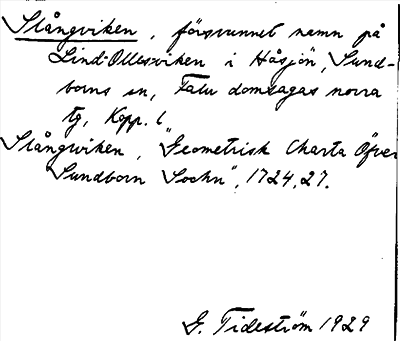 Stångviken, försvunnet namn på
Lind-Ollesviken i Håsjön, Sund-
borns sn, Falu domsagas norra
tg, Kopp. l
Stångwiken, "Geometrisk Charta Öfver
Sundborn Sochn", 1724, 27.
G. Tideström 1929